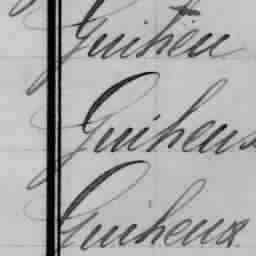 Guihéu
Guiheus
Guiheux